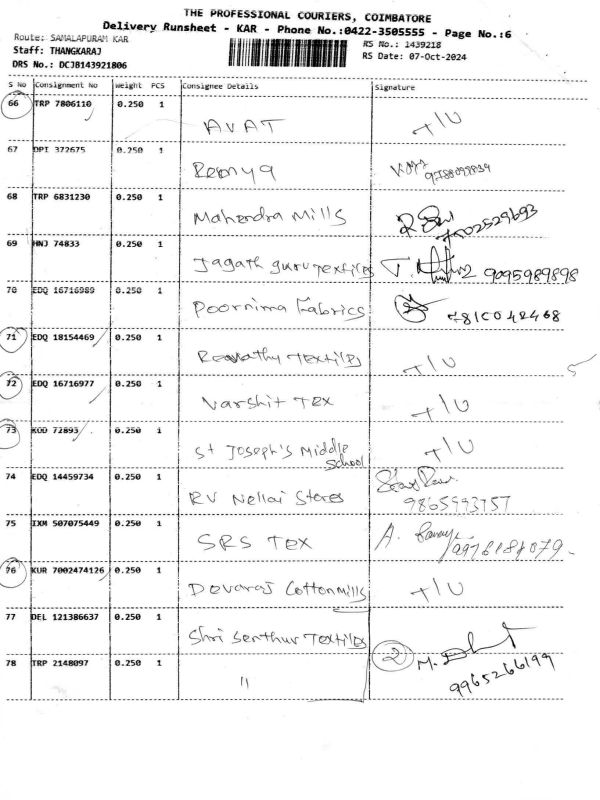 THE PROFESSIONAL COURIERS, COIMBATORE
Delivery Runsheet - KAR - Phone No.:0422-3505555 - Page No.:6
Route: SAMALAPURAM KAR
RS No.: 1439218
Staff: THANGKARAJ
RS Date: 07-Oct-2024
DRS No.: DCJB143921806
S No Consignment No Weight PCS Consignee Details Signature
66 TRP 7806110 0.250 1
AVAT T/U
67 DPI 372675 0.250 1
Remya 9788099834
68 TRP 6831230 0.250 1
Mahendra Mills 7502529693
69 HNJ 74833 0.250 1
Jagath guru Textiles 9095989898
70 EDQ 16716989 0.250 1
Poornima Fabrics 7810042468
71 EDQ 18154469 0.250 1
Revathy Textiles T/U
72 EDQ 16716977 0.250 1
Varshit Tex T/U
73 KOD 72893 0.250 1
St Joseph's Middle School T/U
74 EDQ 14459734 0.250 1
RV Nellai Stores 9865993757
75 IXM 507075449 0.250 1
SRS Tex 9976188079
76 KUR 7002474126 0.250 1
Devaraj Cotton Mills T/U
77 DEL 121386637 0.250 1
Shri Senthur Textiles
78 TRP 2148097 0.250 1
2 9965266199
"